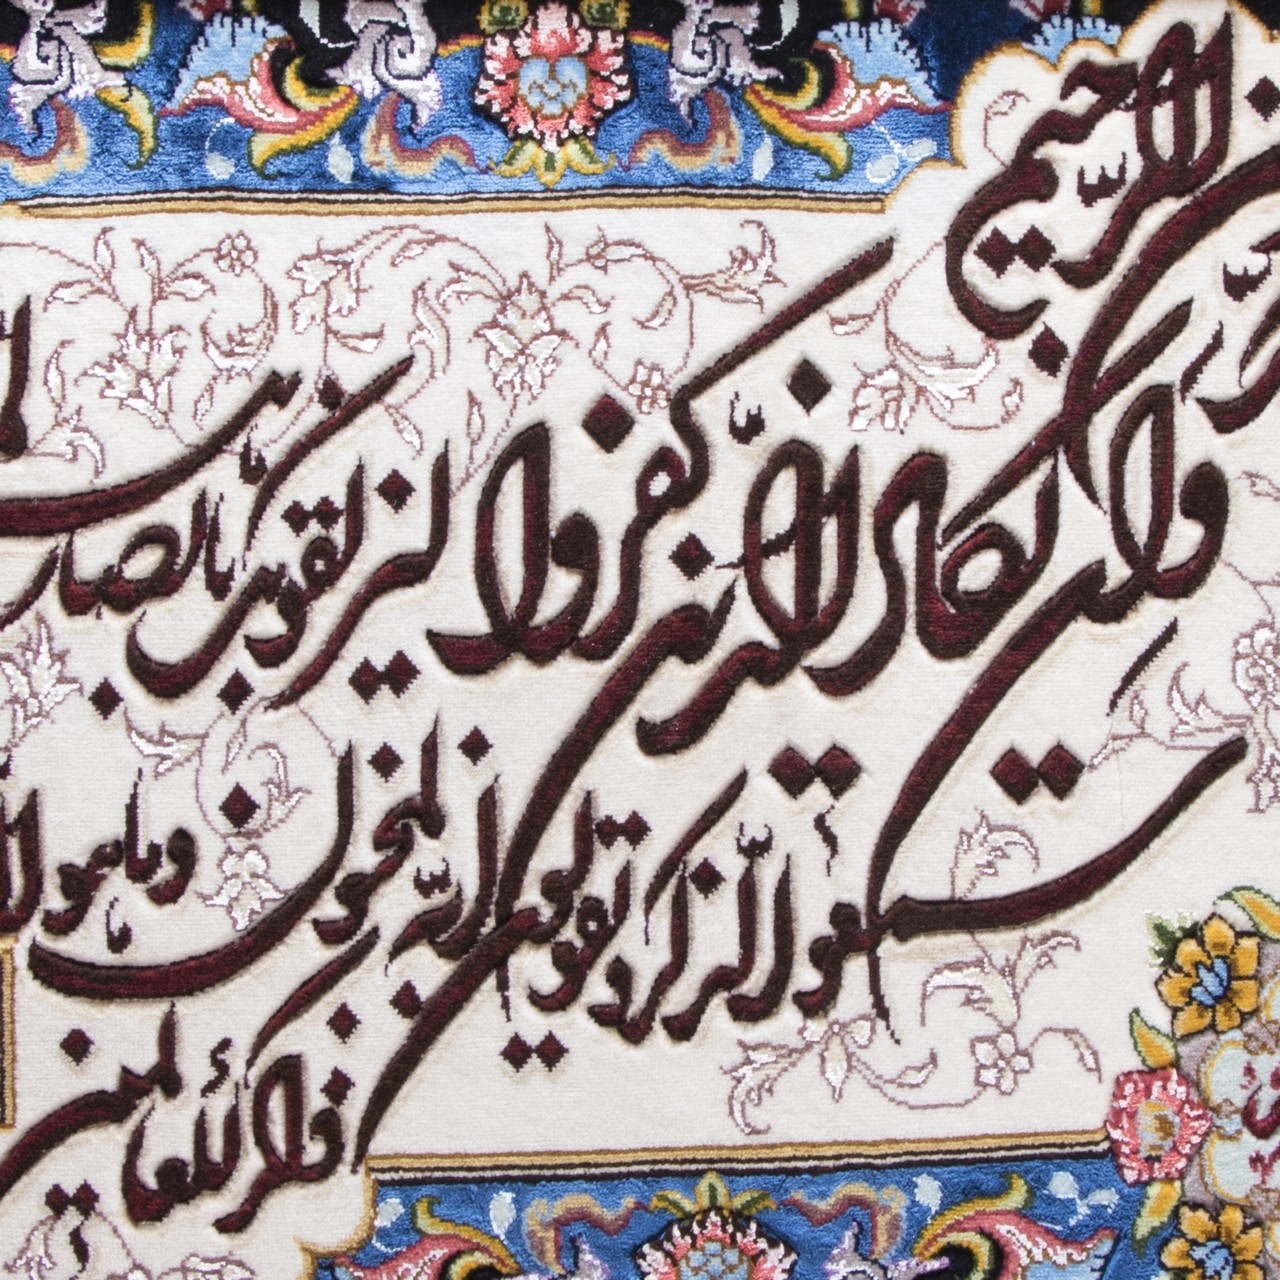 الرحیم
وان یکاد الذین کفروا لیزلقونک بابصارهم
لما سمعوا الذکر و یقولون انه لمجنون وما هو الا
ذکر للعالمین